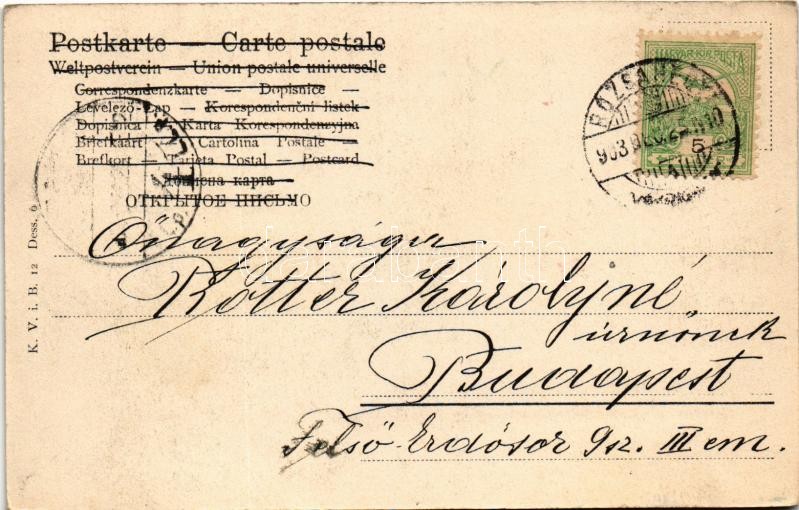 Postkarte — Carte postale
Weltpostverein — Union postale universelle
Correspondenzkarte — Dopisnice —
Levelező-Lap — Korespondenční lístek
Dopisnica — Karta Korespondencyjna
Briefkaart — Cartolina Postale
Brefkort — Tarjeta Postal — Postcard
карта
ОТКРЫТОЕ ПИСЬМО
MAGYAR KIR. POSTA
5
903 DEC
K. V. i. B. 12 Dess. 6
Őnagysága
Rotter Károlyné
úrnőnek
Budapest
Felső Erdősor 9sz. III em.
darabanth